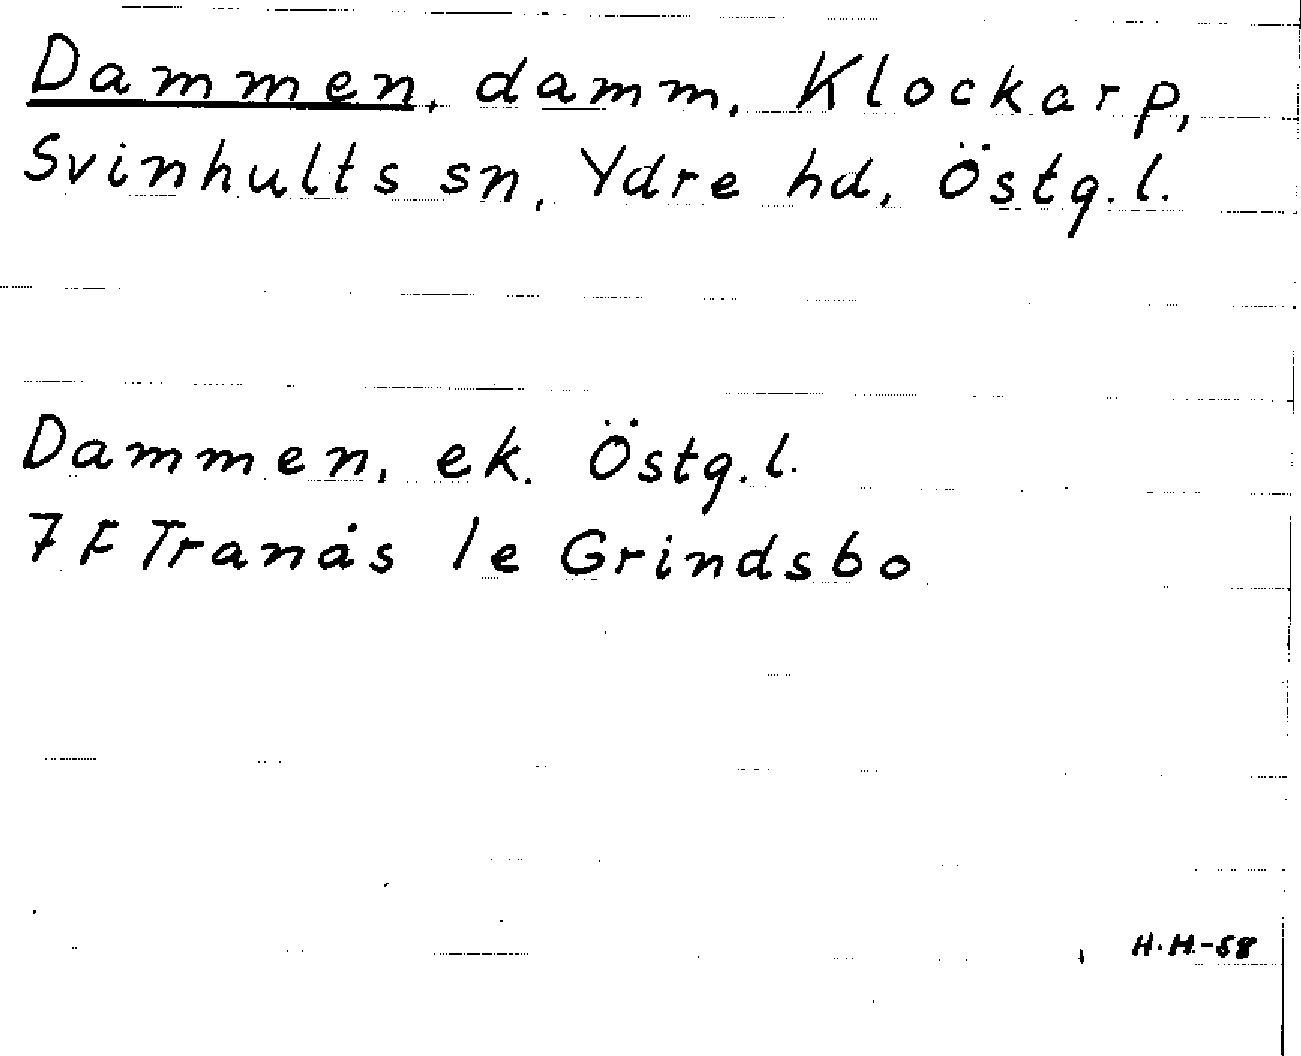 Dammen, damm, Klockarp,
Svinhults sn, Ydre hd, Östg.l.
Dammen, ek. Östg.l.
7 F Tranås 1e Grindsbo
H.H-58